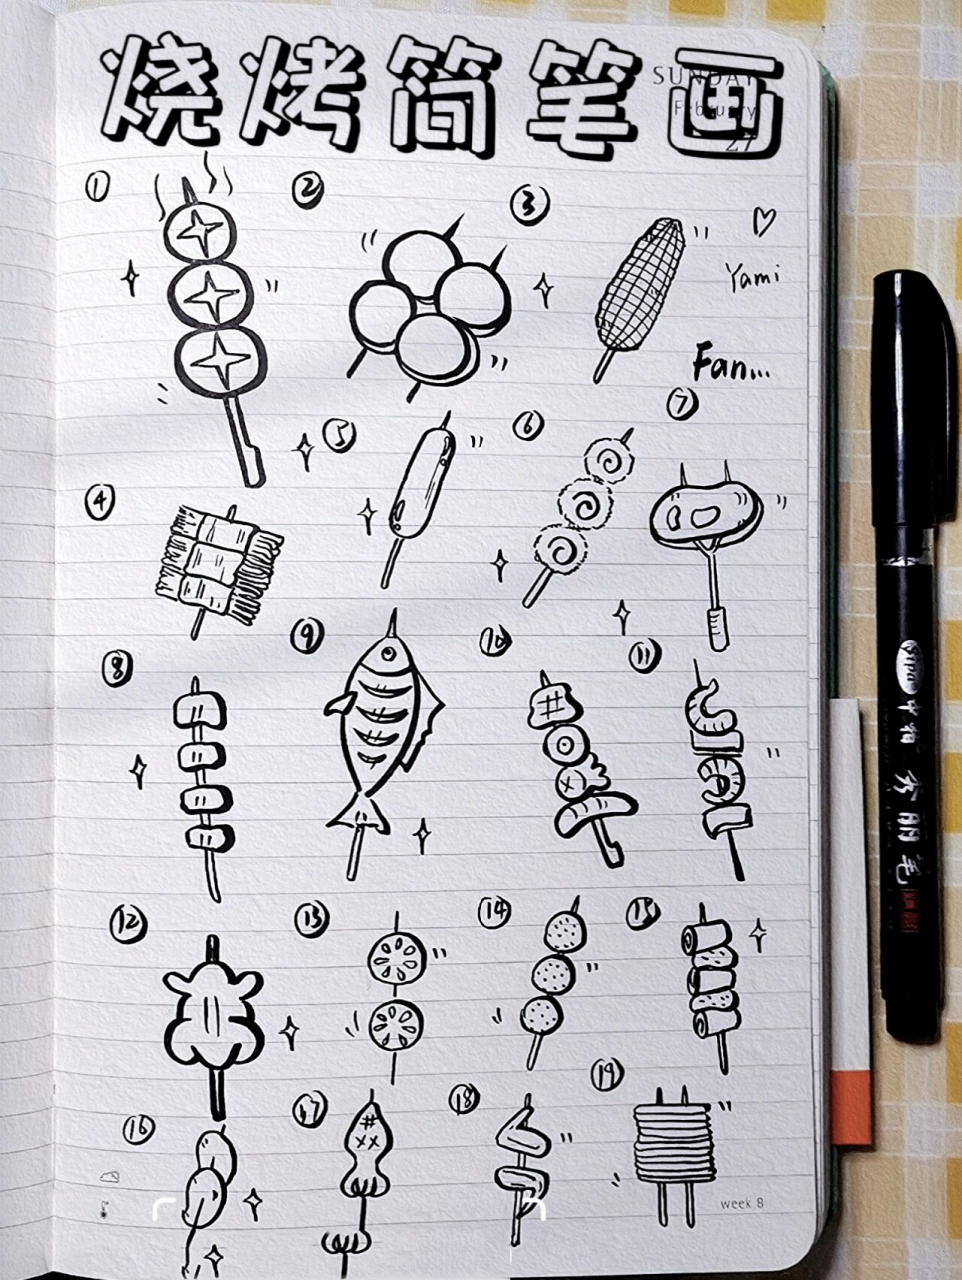 烧烤简笔画
SUNDAY
February
27
① ② ③
Yami
Fan...
④ ⑤ ⑥ ⑦
⑧ ⑨ ⑩ ⑪
⑫ ⑬ ⑭ ⑮
⑯ ⑰ ⑱ ⑲
week 8
Sipa
中楷
秀丽笔